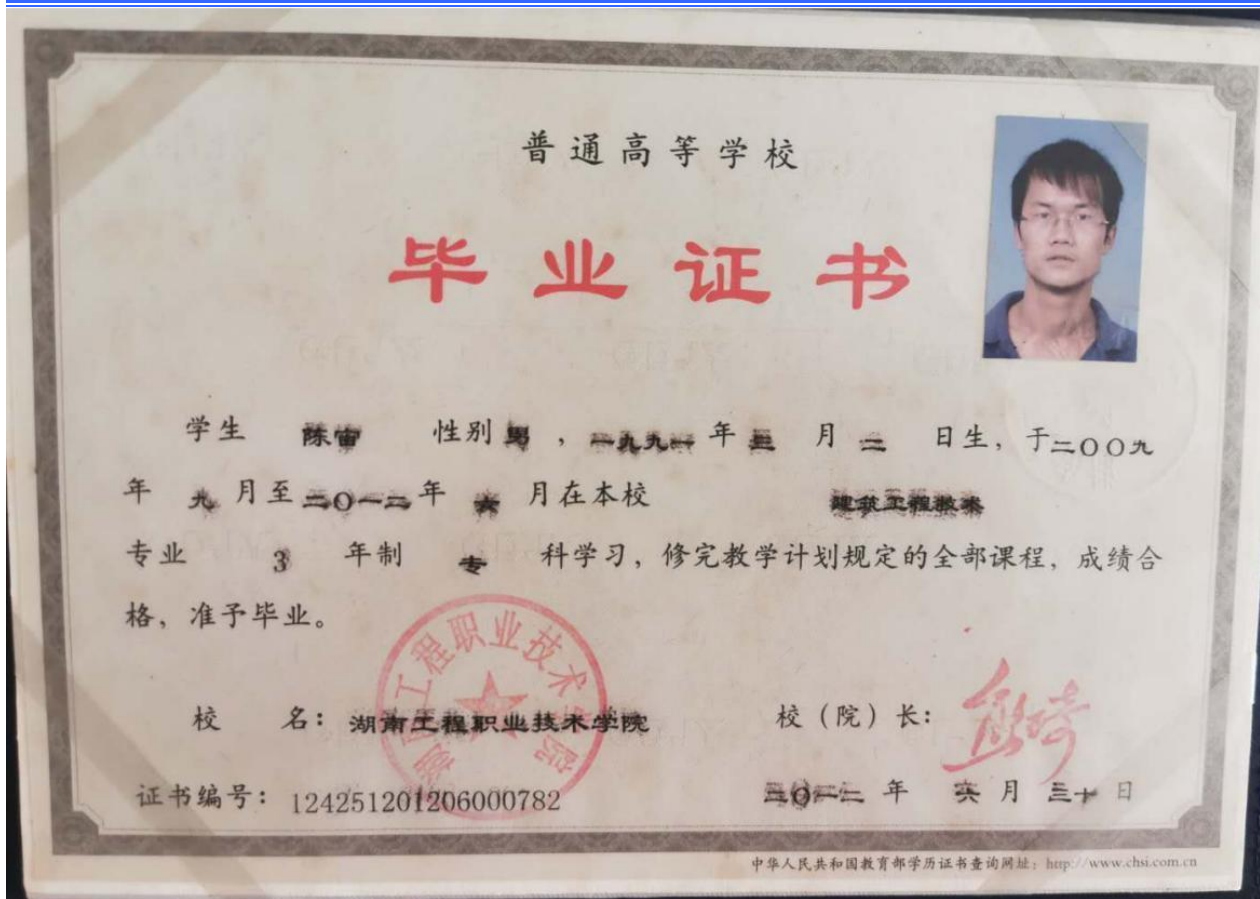 普通高等学校
毕业证书
学生 陈宙 性别 男 ,一九九一 年 三 月 二 日生, 于二〇〇九
年 九 月至 二〇一二 年 六 月在本校 建筑工程技术
专业 3 年制 专 科学习, 修完教学计划规定的全部课程, 成绩合
格, 准予毕业。
湖南工程职业技术学院
校 名: 湖南工程职业技术学院 校(院)长:
证书编号: 124251201206000782 二〇一二 年 六 月 三十 日
中华人民共和国教育部学历证书查询网址: http://www.chsi.com.cn